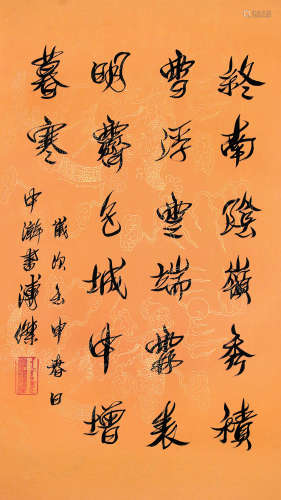 終南陰嶺秀積
雪浮雲端霖表
明霽色城中增
暮寒
歲次壬申春日
中澣書溥傑